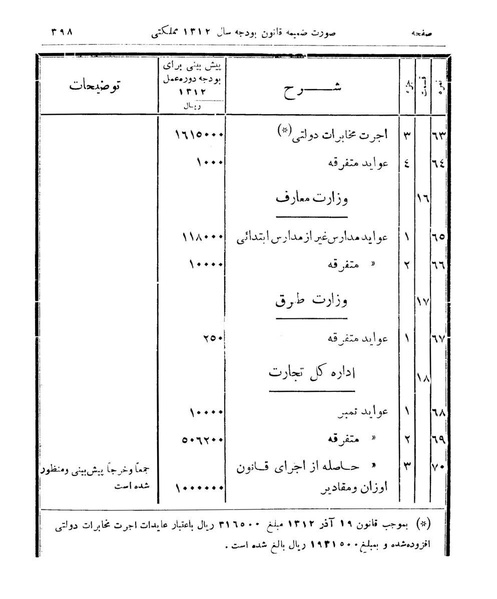 صفحه صورت ضمیمه قانون بودجه سال ۱۳۱۲ مملکتی ۳۹۸
نمره قسمت جزء شـــرح پیش بینی برای بودجه دوره عمل ۱۳۱۲ ریال توضیحات
۶۳ ۳ اجرت مخابرات دولتی (*) ۱۶۱۵۰۰۰
۶٤ ٤ عواید متفرقه ۱۰۰۰
۱۶ وزارت معارف
۶۵ ۱ عواید مدارس غیر از مدارس ابتدائی ۱۱۸۰۰۰
۶۶ ۲ » متفرقه ۱۰۰۰۰
۱۷ وزارت طرق
۶۷ ۱ عواید متفرقه ۲۵۰
۱۸ اداره کل تجارت
۶۸ ۱ عواید نمبر ۱۰۰۰۰
۶۹ ۲ » متفرقه ۵۰۶۲۰۰
۷۰ ۳ » حاصله از اجرای قانون جمعاً و خرجاً پیش بینی ومنظور
اوزان ومقادیر ۱۰۰۰۰۰۰ شده است
(*) بموجب قانون ۱۹ آذر ۱۳۱۲ مبلغ ۳۱۶۵۰۰ ریال باعتبار عایدات اجرت مخابرات دولتی
افزوده شده و بمبلغ ۱۹۳۱۵۰۰ ریال بالغ شده است .